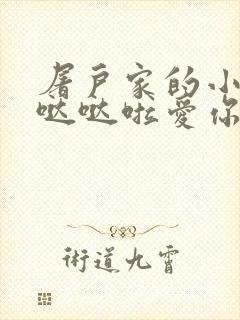 屠户家的小
哒哒啦爱你
術道九霄